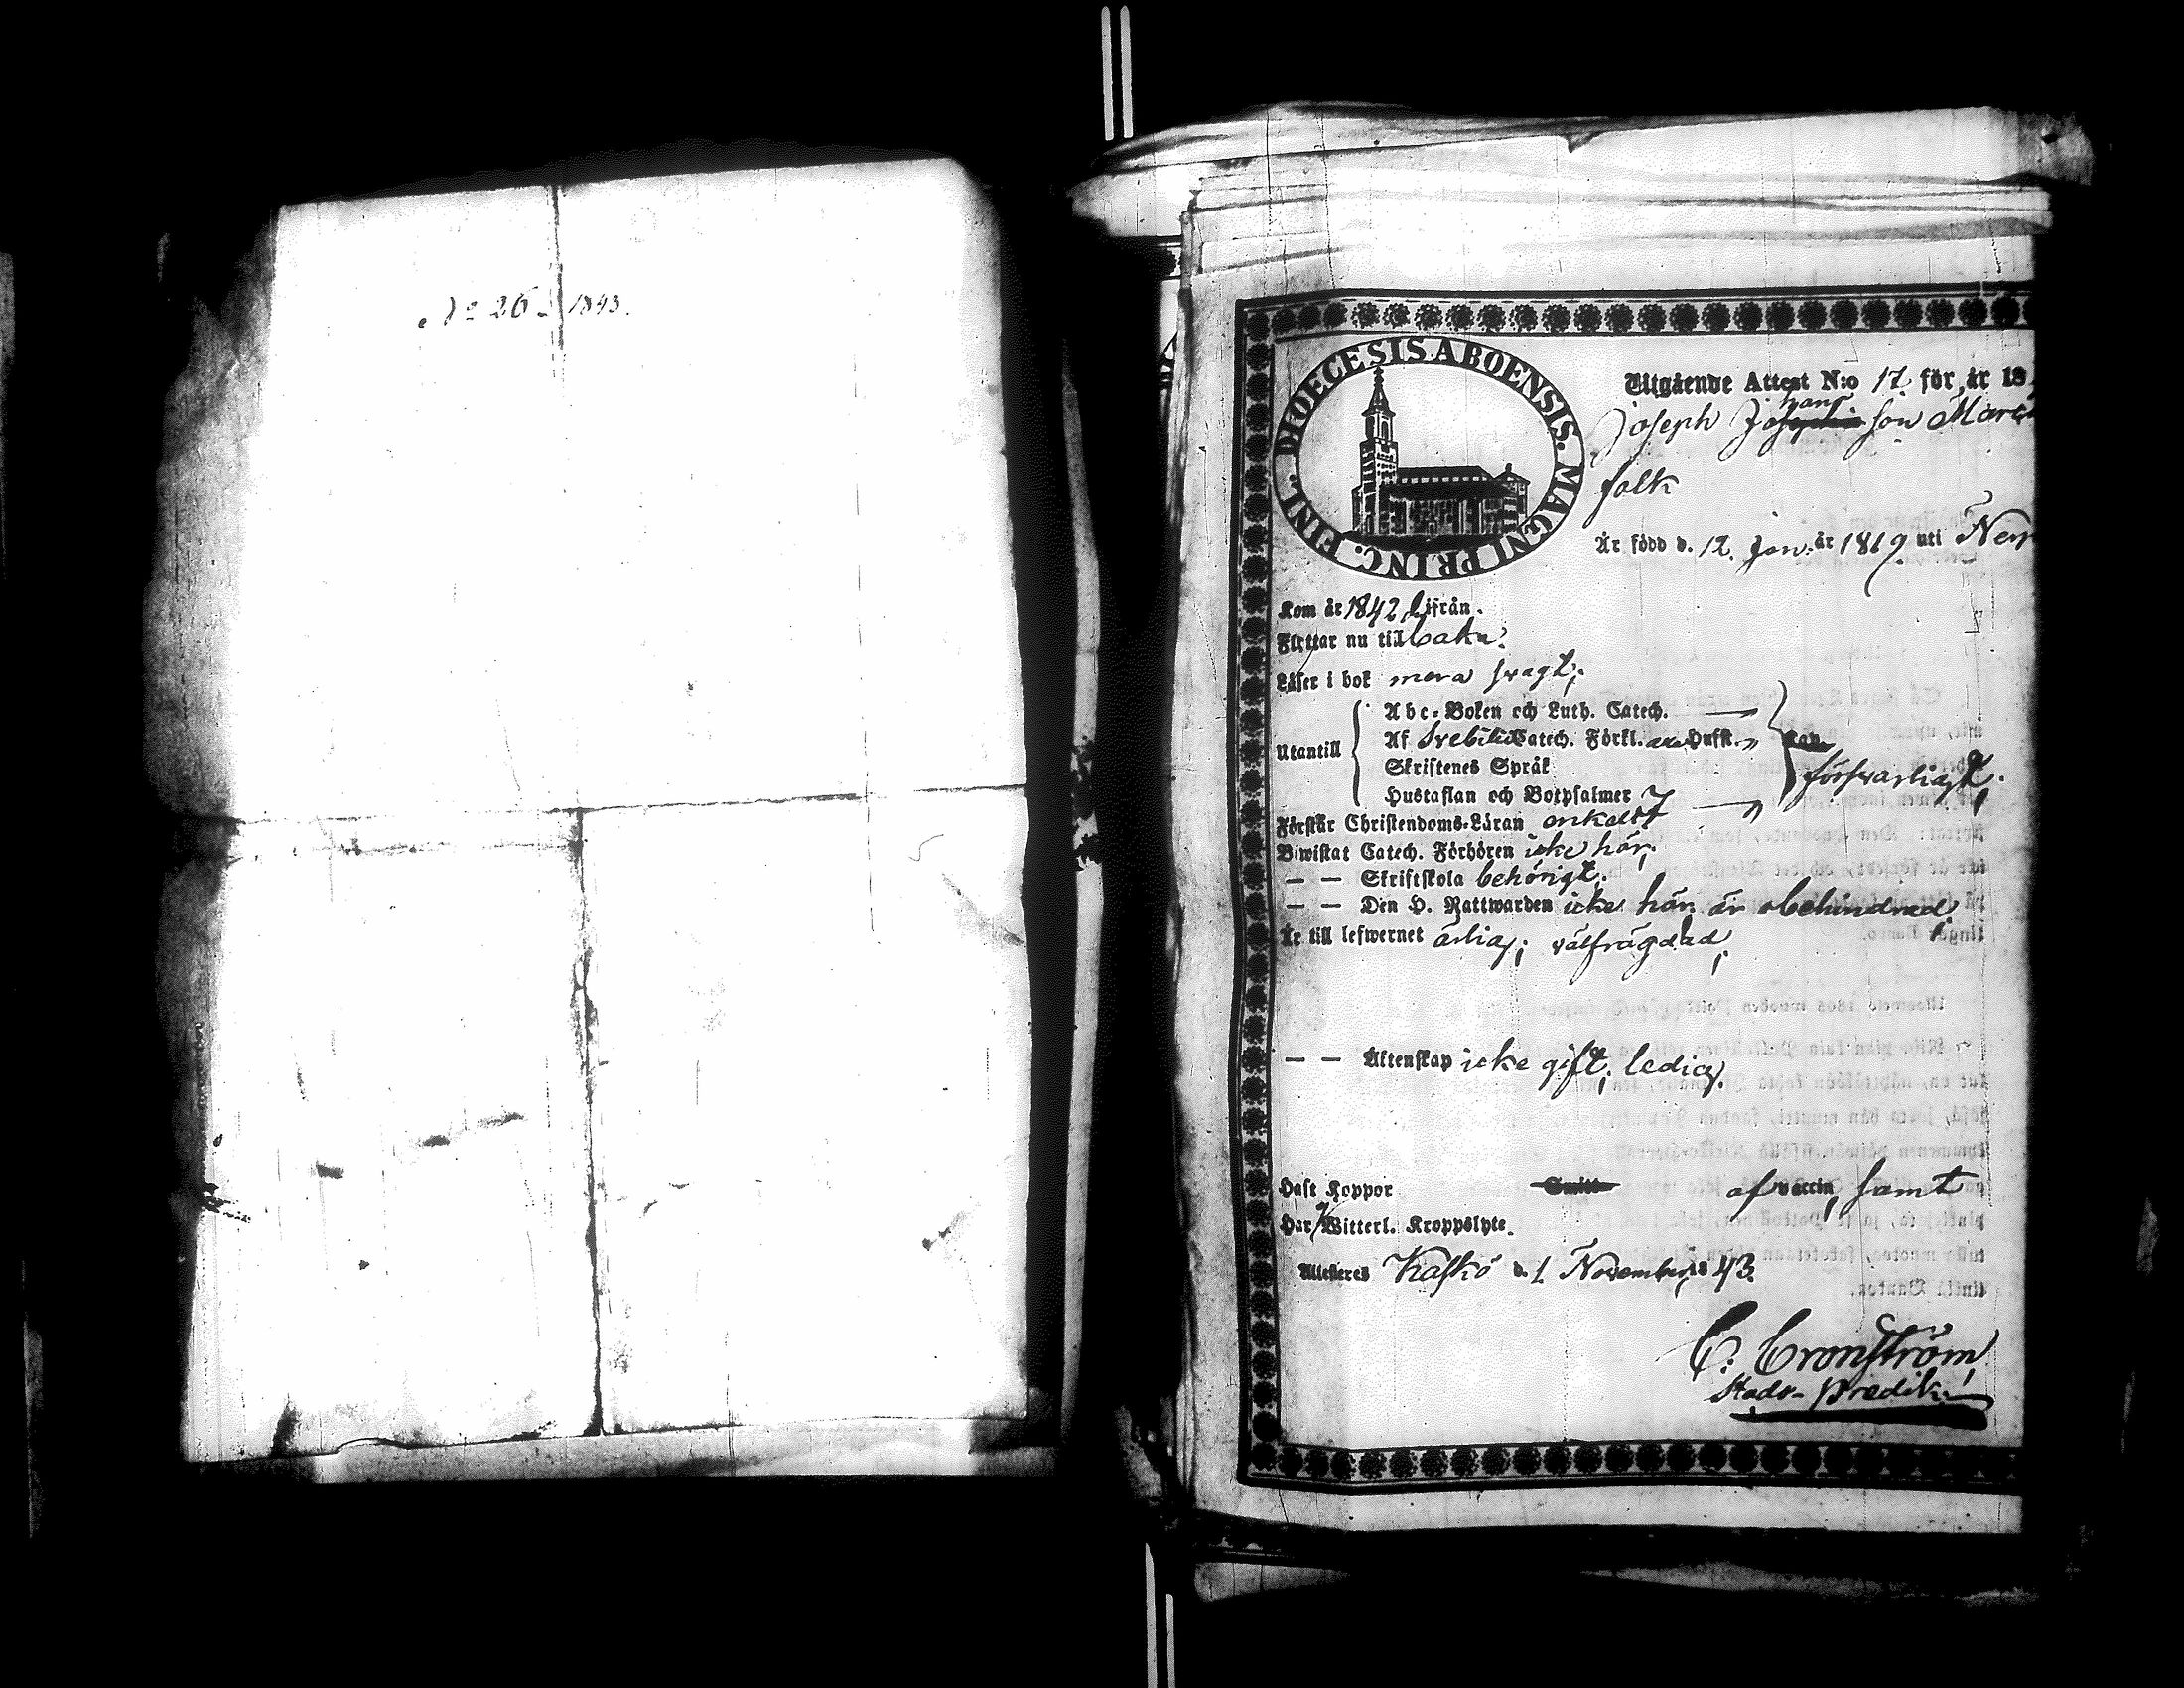 No 26 - 1843.
DIOECESIS ABOENSIS. MAGNI PRINC. FINL.
Utgående Attest N:o 17 för år 18
Joseph Josephs hans son
folk
Är född d. 12 Jan. år 1819 uti
Kom år 1842 ifrån.
Flyttar nu till baka.
Läser i bok mera svagt;
Utantill
Abc-Boken och Luth. Catech.
Af Svebilii Catech. Förkl. Hufst.
Cap.
Skriftenes Språk
försvarligt.
Hustaflan och Botpsalmer
Förstår Christendoms-Läran enkelt
Biwistat Catech. Förhören icke här;
— — Skriftskola behörigt.
— — Den H. Nattwarden icke här är obehindrad
Är till lefwernet ärlig; välfrägdad;
— — Äktenskap icke gift, ledig.
Haft Koppor Smitt- af vaccin, samt
Har Witterl. Kroppslyte.
Attesteras Kaskö d. 1 November 1843.
C. Cronström
Stads-predik.